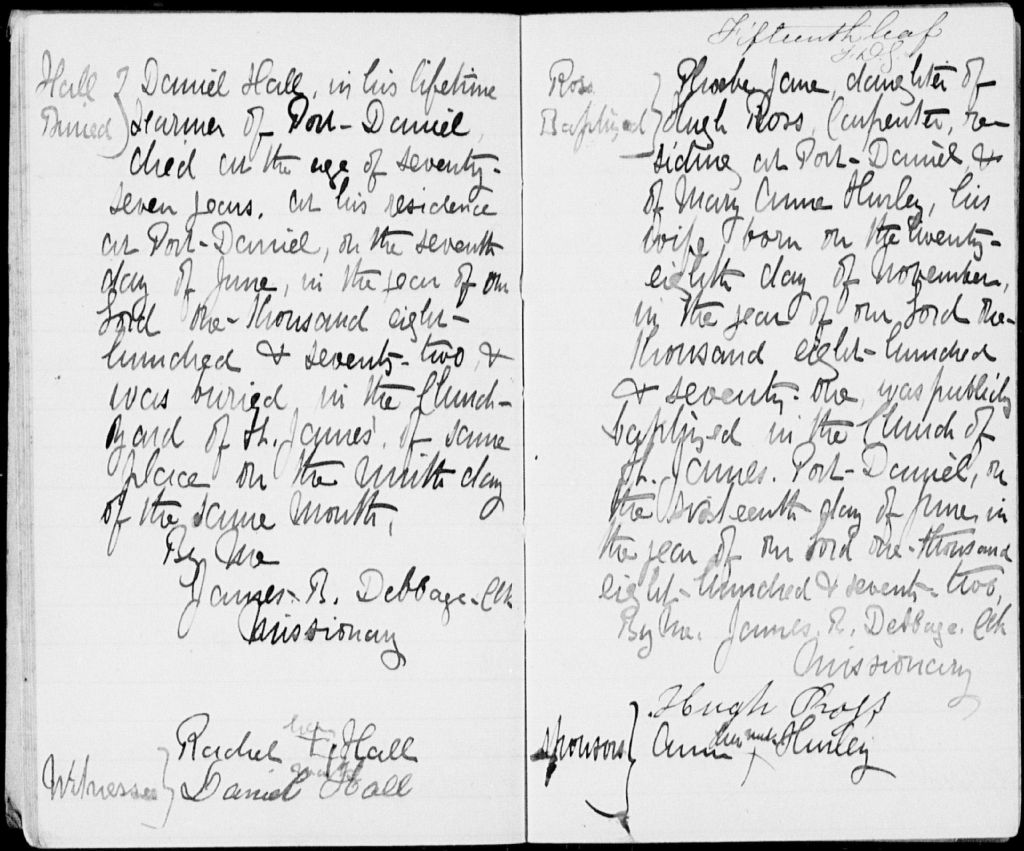 Hall
Buried
Daniel Hall, in his lifetime
Farmer of Port-Daniel,
died at the age of seventy-
seven years, at his residence
at Port-Daniel, on the seventh
day of June, in the year of our
Lord one-thousand eight-
hundred & seventy-two, &
was buried in the Church-
yard of St. James' of same
place on the ninth day
of the same month,
By Me
James. R. Debbage. Clk
Missionary
Rachel her F. Hall
mark
Witnesses
Daniel Hall
Fifteenth leaf
Ross
Baptized
Phoebe Jane, daughter of
Hugh Ross, Carpenter, re-
siding at Port-Daniel, &
of Mary Anne Hurley, his
wife, born on the twenty-
eighth day of November,
in the year of our Lord one-
thousand eight-hundred
& seventy-one, was publicly
baptized in the Church of
St. James. Port-Daniel, on
the sixteenth day of June, in
the year of our Lord one-thousand
eight-hundred & seventy-two,
By Me. James. R. Debbage. Clk
Missionary
Hugh Ross
Sponsors
Anne her mark X Hurley